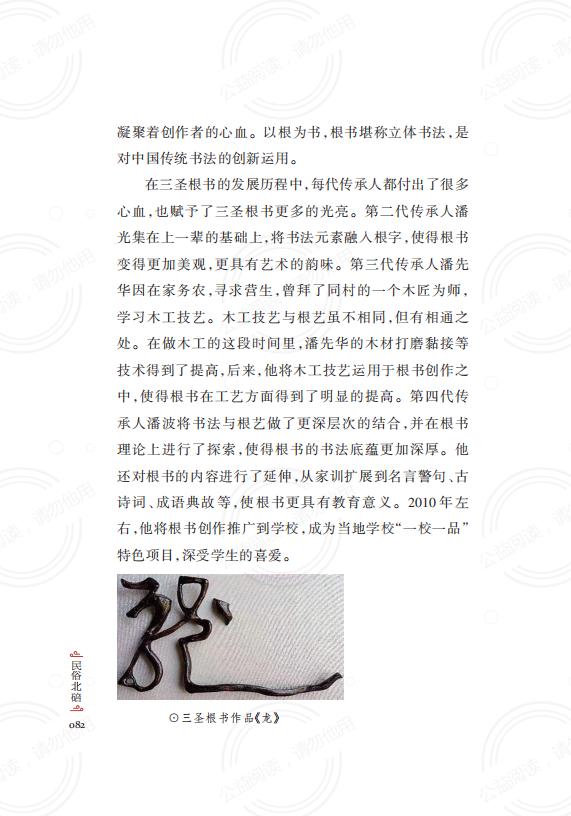 凝聚着创作者的心血。以根为书，根书堪称立体书法，是
对中国传统书法的创新运用。
在三圣根书的发展历程中，每代传承人都付出了很多
心血，也赋予了三圣根书更多的光亮。第二代传承人潘
光集在上一辈的基础上，将书法元素融入根字，使得根书
变得更加美观，更具有艺术的韵味。第三代传承人潘先
华因在家务农，寻求营生，曾拜了同村的一个木匠为师，
学习木工技艺。木工技艺与根艺虽不相同，但有相通之
处。在做木工的这段时间里，潘先华的木材打磨黏接等
技术得到了提高，后来，他将木工技艺运用于根书创作之
中，使得根书在工艺方面得到了明显的提高。第四代传
承人潘波将书法与根艺做了更深层次的结合，并在根书
理论上进行了探索，使得根书的书法底蕴更加深厚。他
还对根书的内容进行了延伸，从家训扩展到名言警句、古
诗词、成语典故等，使根书更具有教育意义。2010年左
右，他将根书创作推广到学校，成为当地学校“一校一品”
特色项目，深受学生的喜爱。
龙
⊙三圣根书作品《龙》
民俗北碚
082
公益阅读，请勿他用